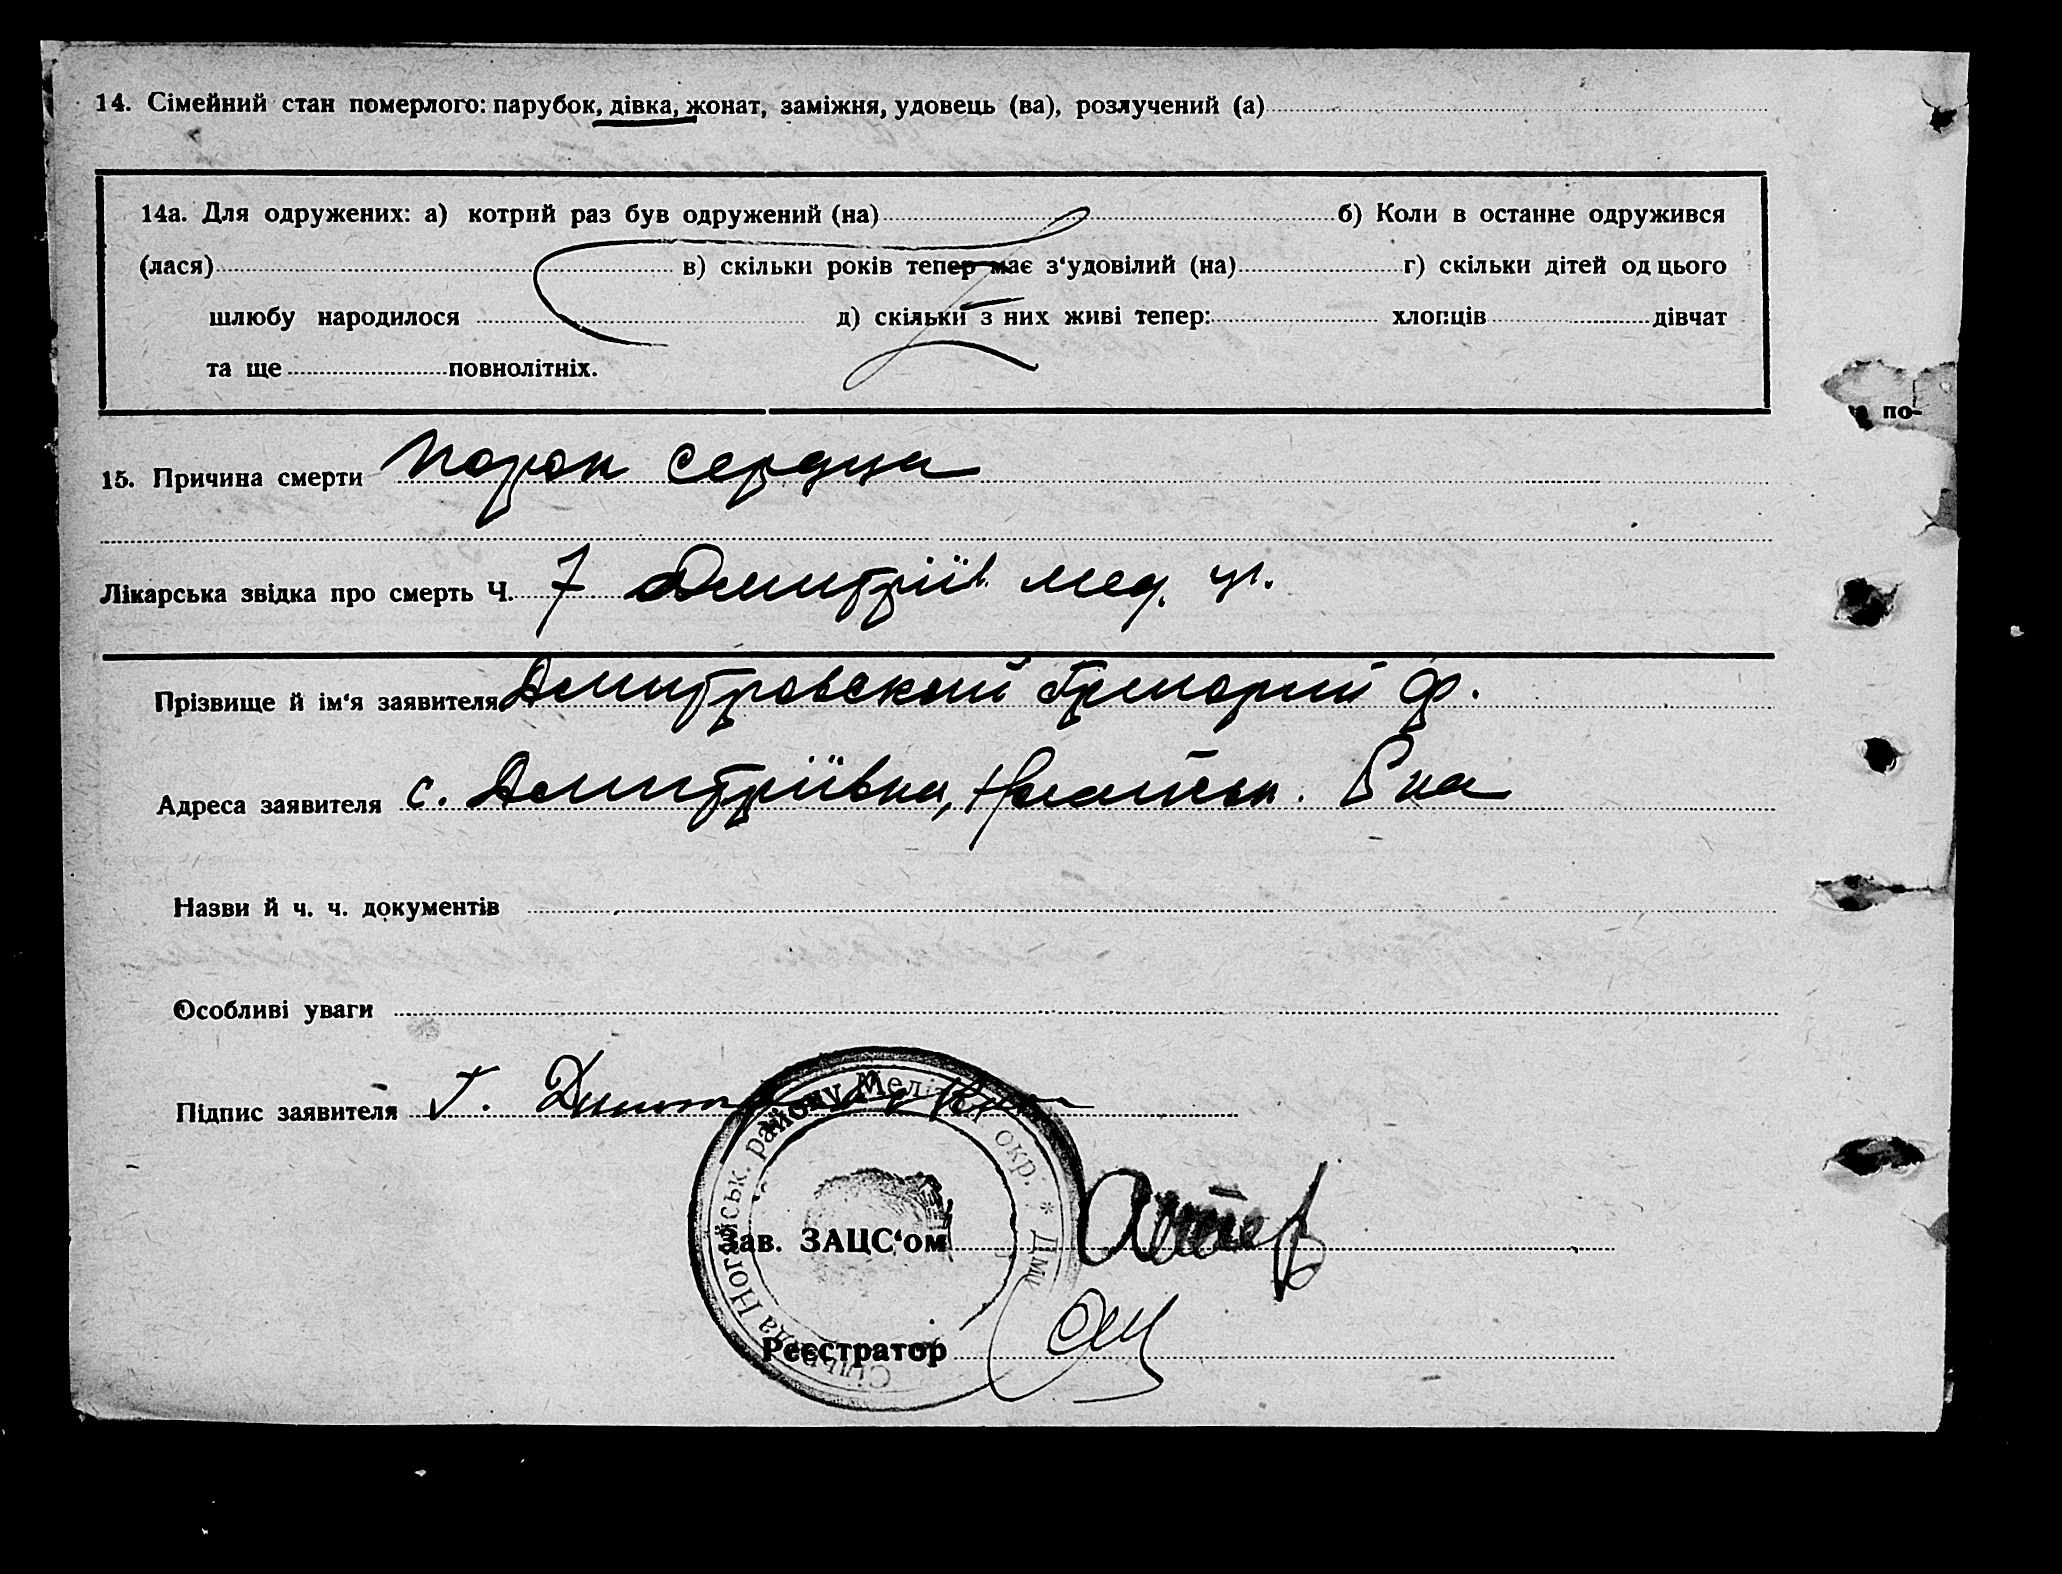 14. Сімейний стан померлого: парубок, дівка, жонат, заміжня, удовець (ва), розлучений (а)
14а. Для одружених: а) котрий раз був одружений (на) б) Коли в останнє одружився
(лася) в) скільки років тепер має з‘удовілий (на) г) скільки дітей од цього
шлюбу народилося д) скільки з них живі тепер: хлопців дівчат
та ще повнолітніх.
по-
15. Причина смерти порок сердца
Лікарська звідка про смерть Ч. 7 Дмитріїв. мед. уч.
Прізвище й ім‘я заявителя Дмитровский Григорий Ф.
Адреса заявителя с. Дмитріївка, Ногайськ. Р на
Назви й ч. ч. документів
Особливі уваги
Підпис заявителя Г.
Сільрада Ногайськ. району Меліт. окр. * Дми
Зав. ЗАЦС‘ом
Реєстратор